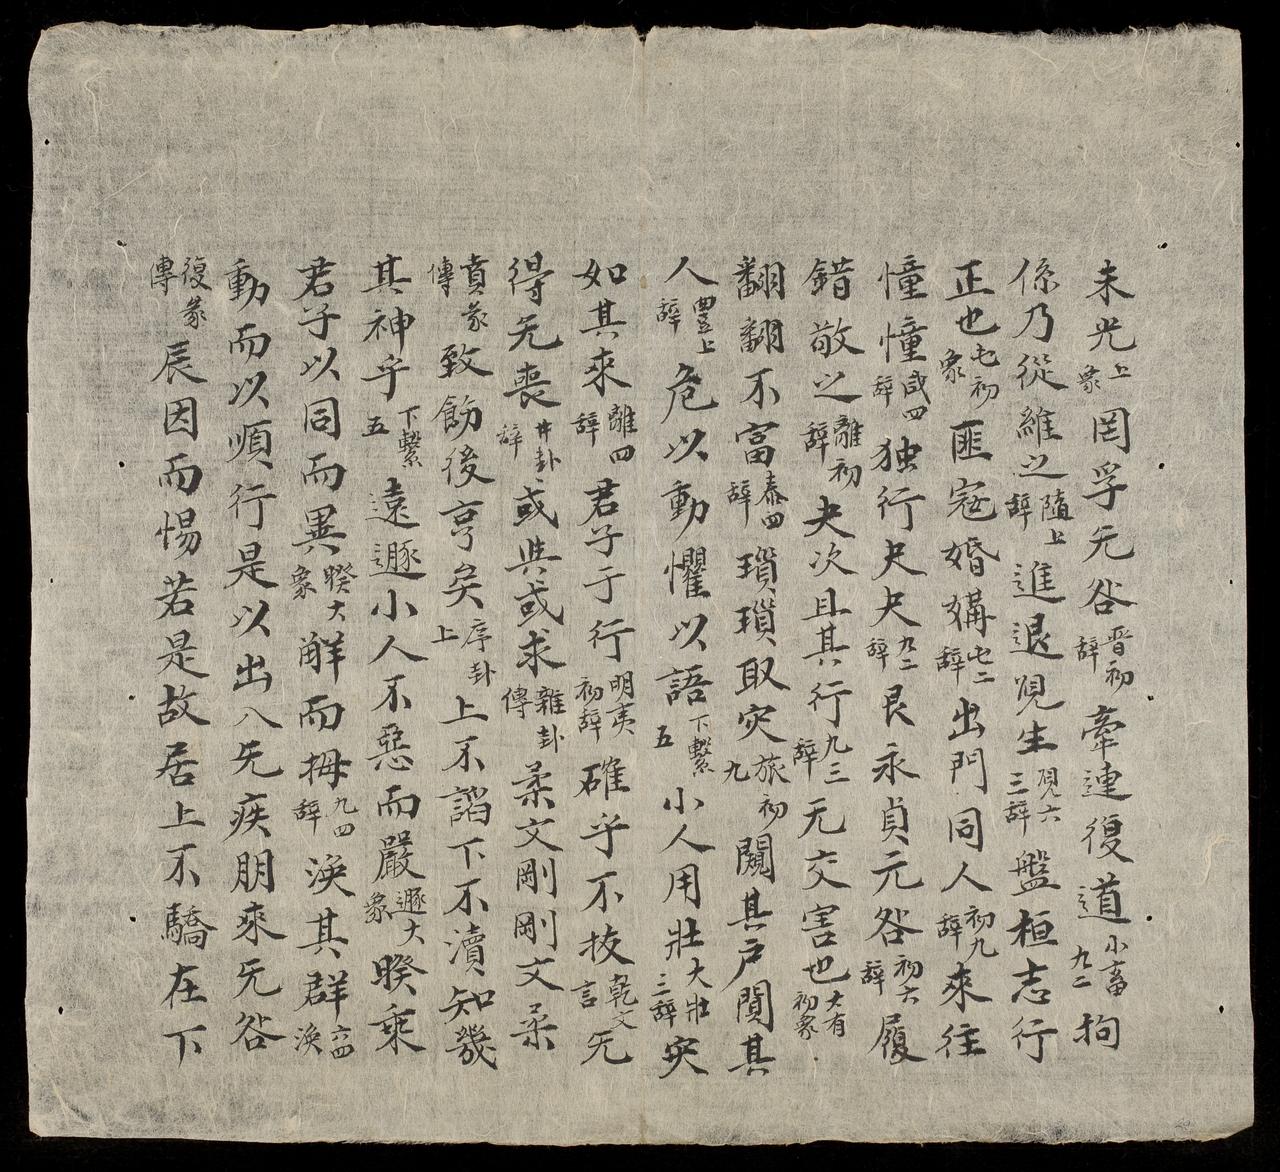 未光上象罔孚无咎晋初辞牽連復道小畜九二拘
係乃從維之隨上辞進退覌生覌六三辞盤桓志行
正也屯初象匪寇婚媾屯二辞出門同人初九辞來往
憧憧咸四辞独行夬夬九二辞艮永貞无咎初六辞履
錯敬之離初辞夬次且其行九三辞无交害也大有初象
翩翩不富泰四辞瑣瑣取灾旅初九闚其戸闃其
人豐上辞危以動懼以語下繫五小人用壯大壯三辞突
如其來離四辞君子于行明夷初辞確乎不抜乾文言无
得无喪井卦辞或與或求雜卦傳柔文剛剛文柔
賁彖傳致飾後亨矣序卦上上不諂下不瀆知幾
其神乎下繫五遠遯小人不惡而嚴遯大象睽乘
君子以同而異睽大象解而拇九四辞渙其群六四渙
動而以順行是以出入无疾朋來无咎
復彖傳辰因而惕若是故居上不驕在下